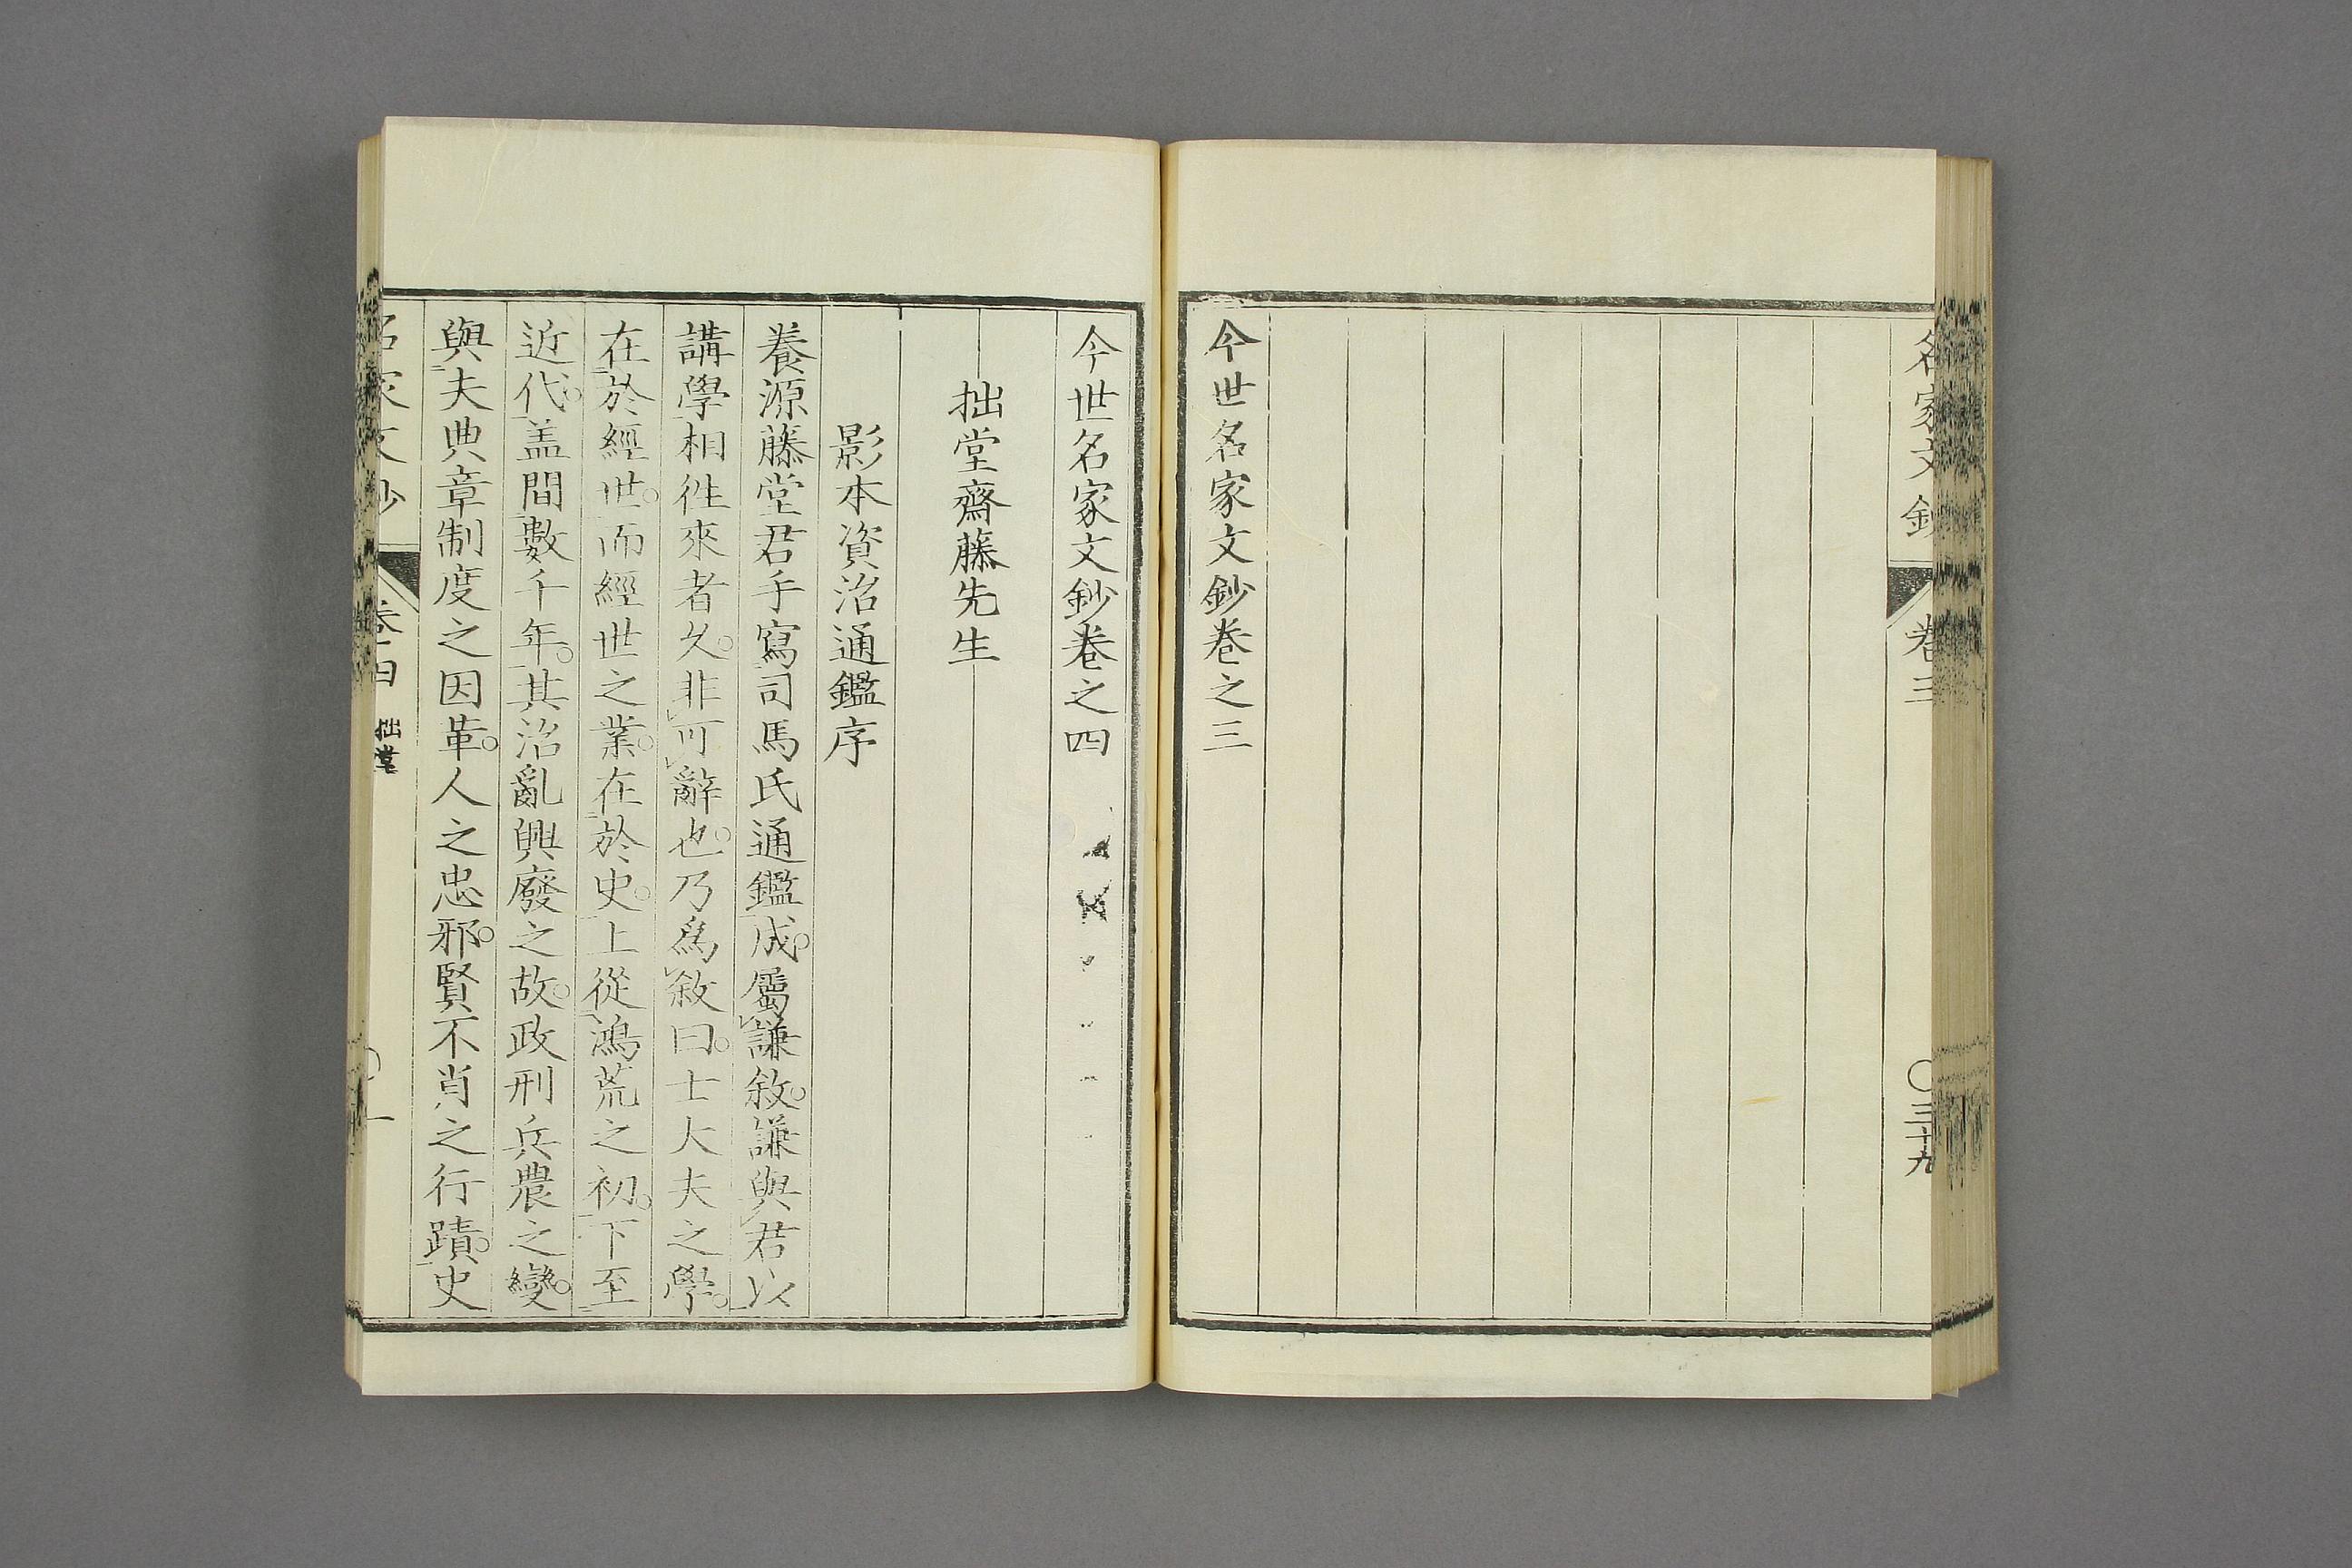 名家文鈔 卷三 〇三十九
今世名家文鈔卷之三
今世名家文鈔卷之四
拙堂齋藤先生
影本資治通鑑序
養源藤堂君手寫司馬氏通鑑成。屬謙敘。謙與君以
講學相徃來者久。非可辭也。乃爲敘曰。士大夫之學。
在於經世。而經世之業。在於史。上從鴻荒之初。下至
近代。盖間數千年。其治亂興廢之故。政刑兵農之變。
與夫典章制度之因革。人之忠邪。賢不肖之行蹟。史
名家文鈔 卷四 拙堂 〇一